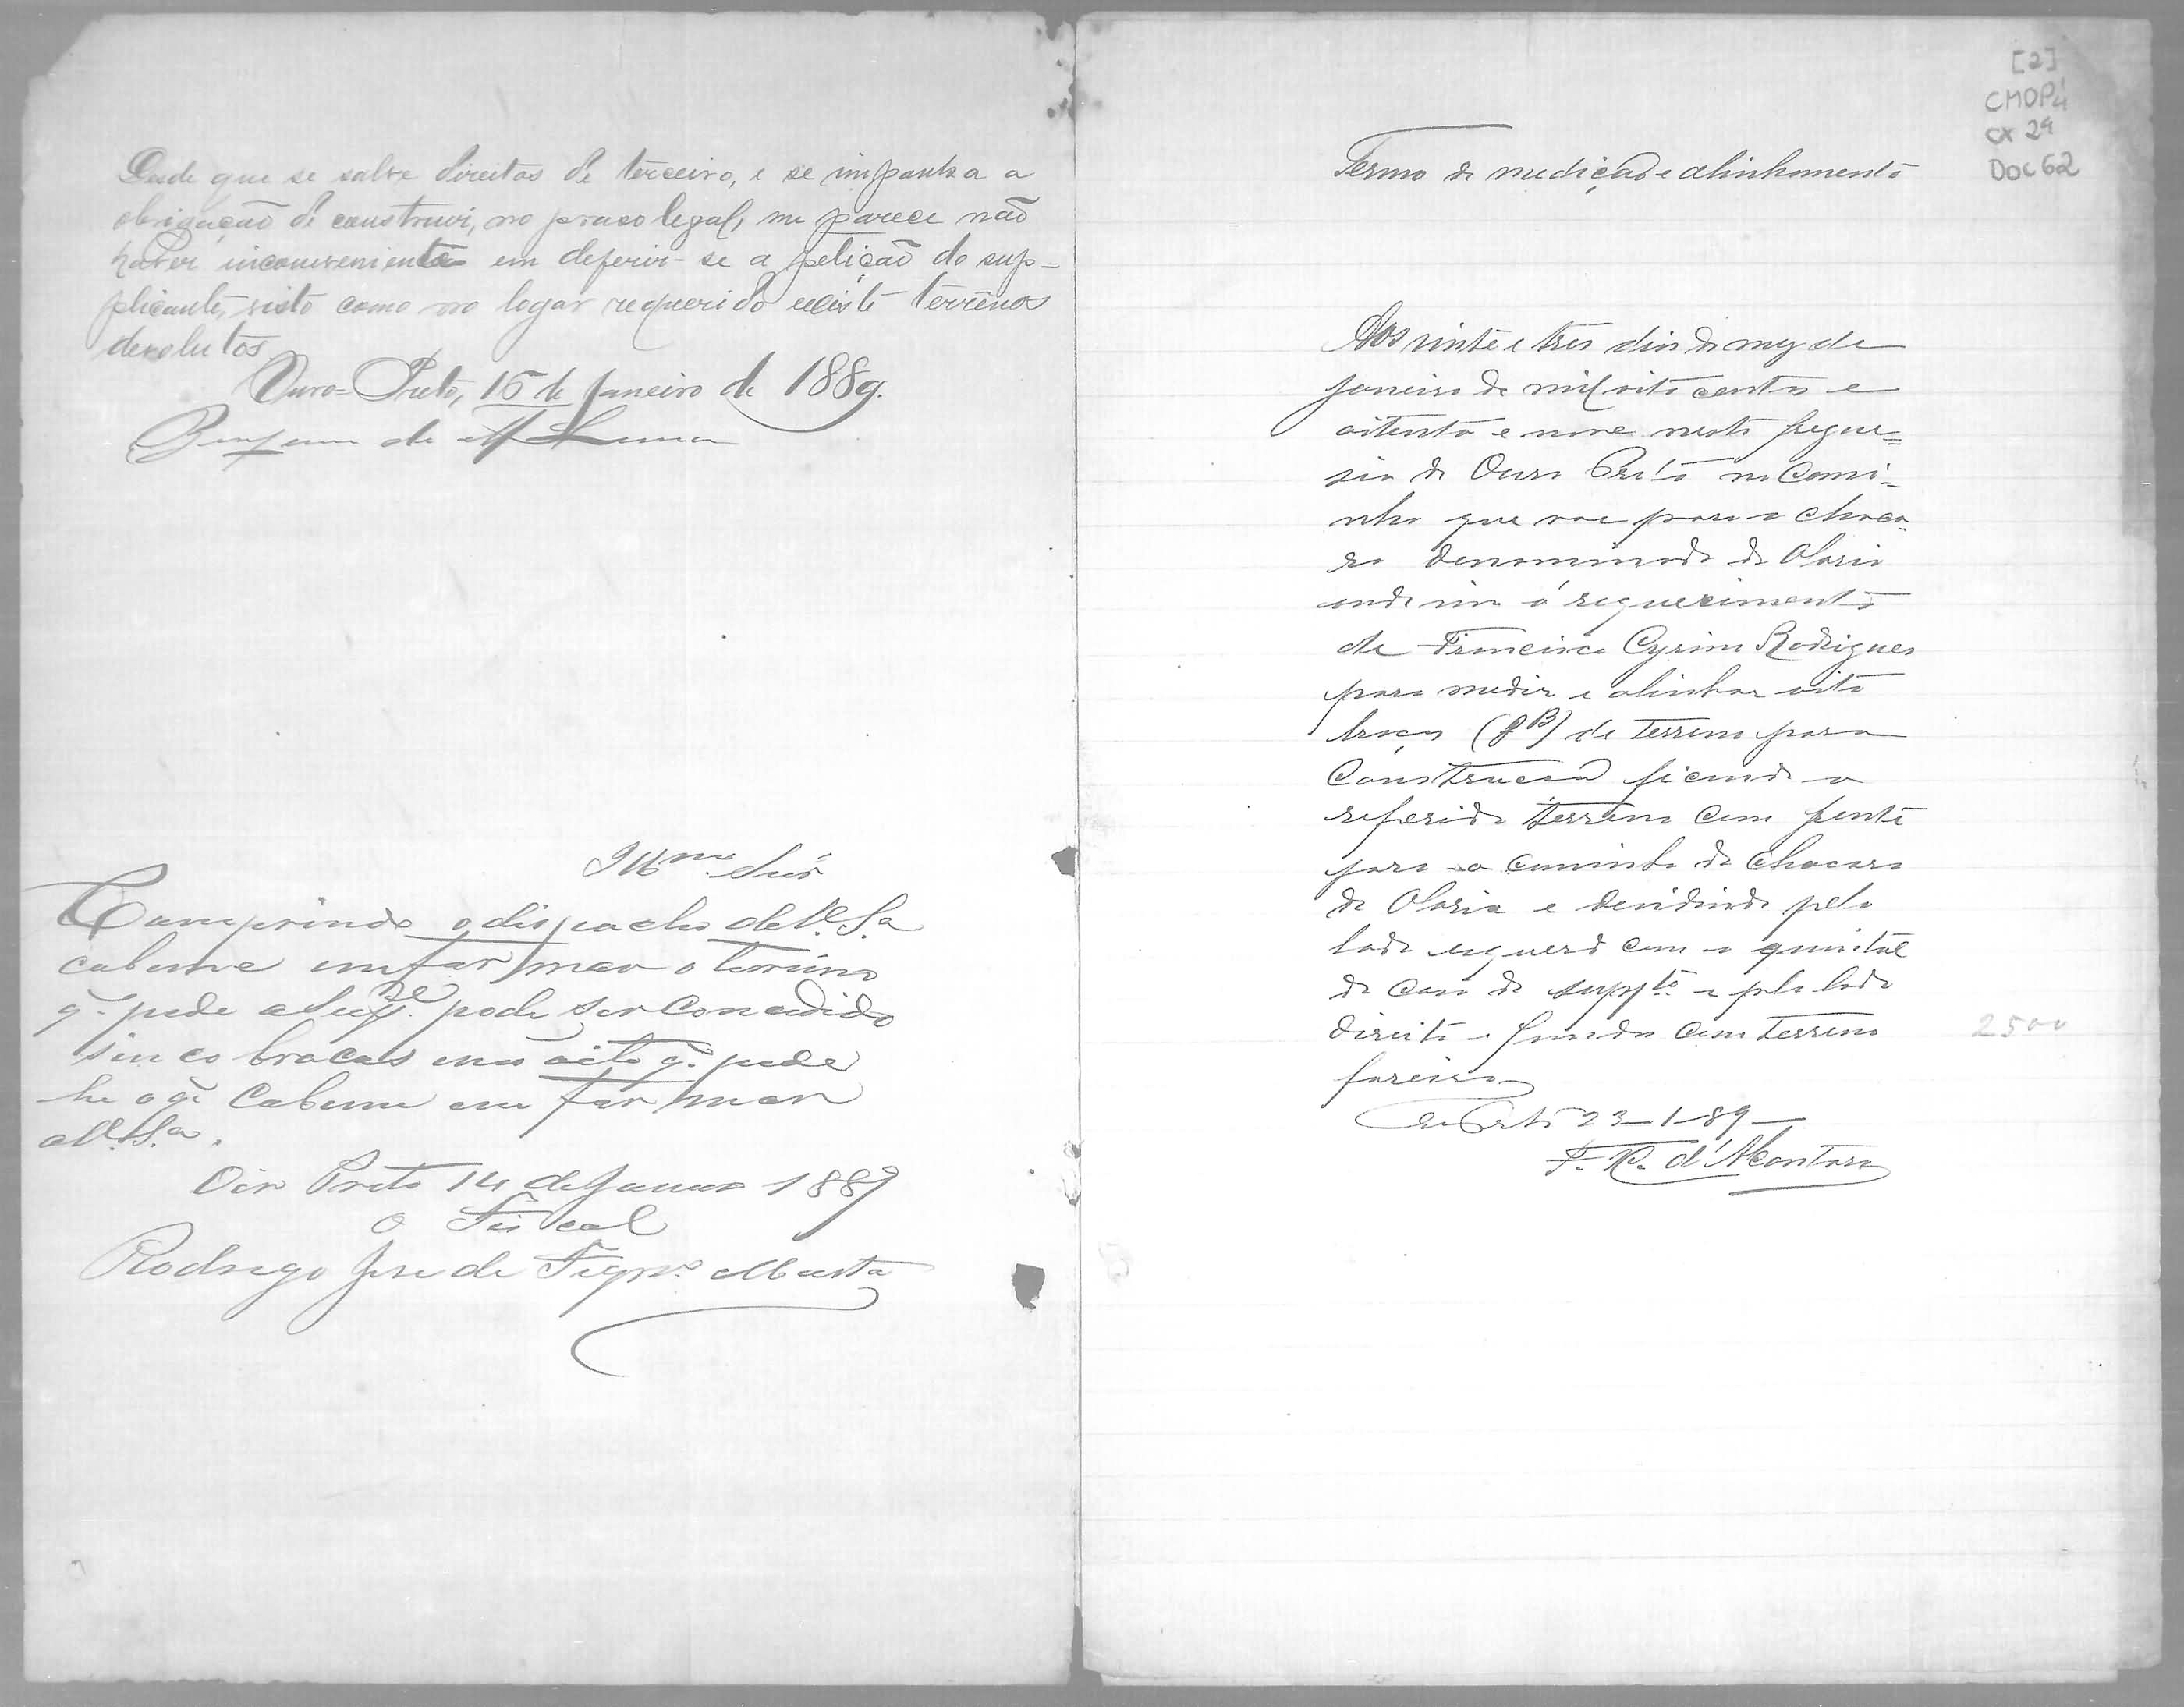 Desde que se salve direitos de terceiro, e se imponha a
obrigação de construir, no praso legal, me parece não
haver inconveniente em deferir-se a petição do sup-
plicante, visto como no logar requerido existe terrenos
devolutos.
Ouro-Preto, 15 de Janeiro de 1889.
de Lima
Illmo Snr
Comprindo o dispacho de V. S.a
cabe me emformar o terreno
q. pede a pode ser Concedido
sinco bracas e não oito q. pede
he o q. Cabeme em formar
a V. S.a.
Oiro Preto 14 de Janeiro 1889
O Fiscal
Rodrigo Jose de Figrdo Murta
[2]
CMOP
CX 29
DOC 62
Termo de medição e alinhamento
Aos vinte e tres dias do mez de
Janeiro de mil oito centos e
oitenta e nove nesta fregue=
sia de Ouro Preto no Cami=
nho que vae para a chaca-
ra denominada da Olaria
onde vim á requerimento
de Francisco Cyrino Rodrigues
para medir e alinhar oito
braças (8B) de terreno para
Construcção ficando o
referido terreno com frente
para o caminho da Chacara
da Olaria e devidindo pelo
lado esquerdo com o quintal
da casa do suppte e pelo lado
direito e fundos com terreno
foreiro
O. Preto 23-1-89-
F. d'Alcantara
2500